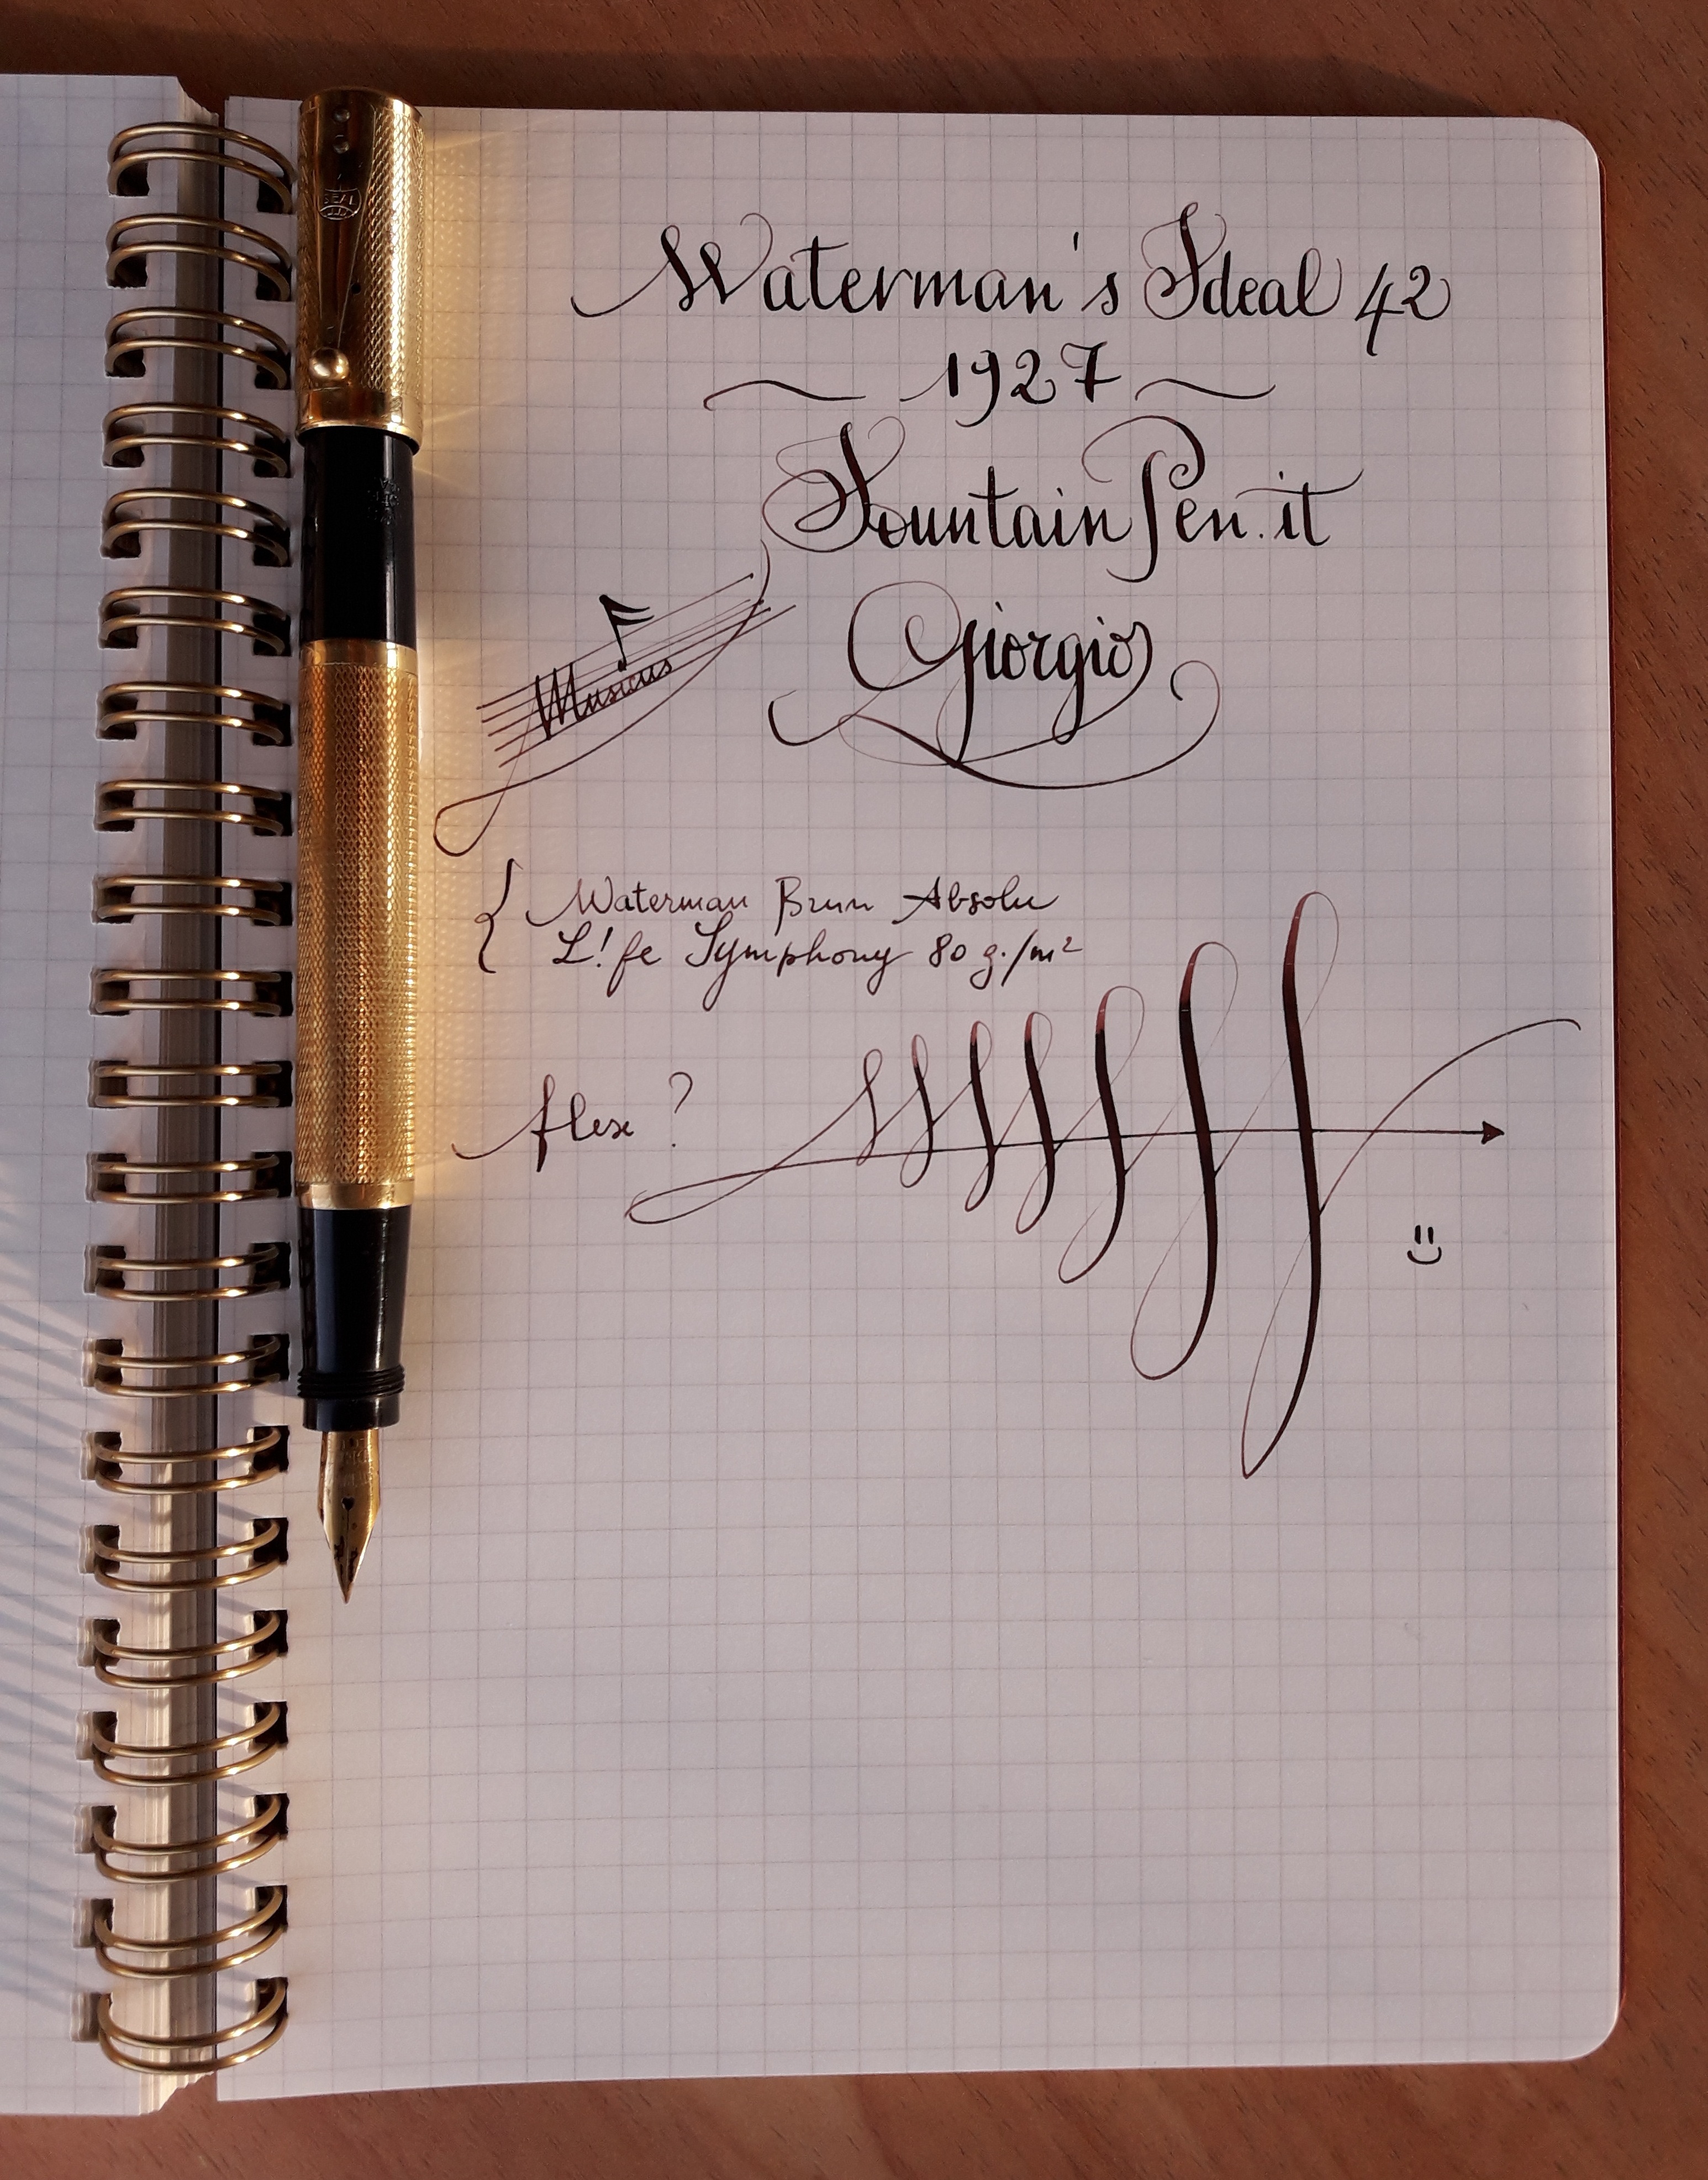 Waterman's Ideal 42
1927
FountainPen.it
Giorgio
Musicus
Waterman Brun Absolu
L!fe Symphony 80 g./m²
flex?